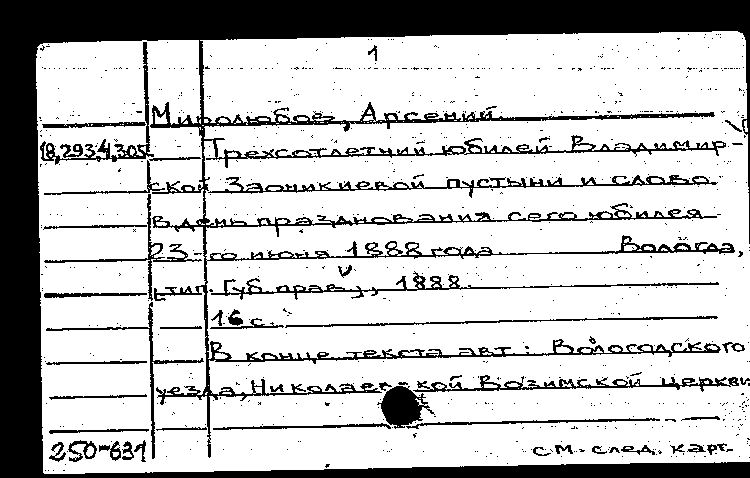 1
Миролюбов, Арсений.
18,293.4.305 Трехсотлетний юбилей Владимир-
ской Заоникиевой пустыни и слово
в день празднования сего юбилея
23-го июня 1888 года. Вологда,
[тип. Губ. прав.], 1888.
16 с.
В конце текста авт: Вологодского
уезда, Николаевской Возимской церкви
250-631 см. след. карт.